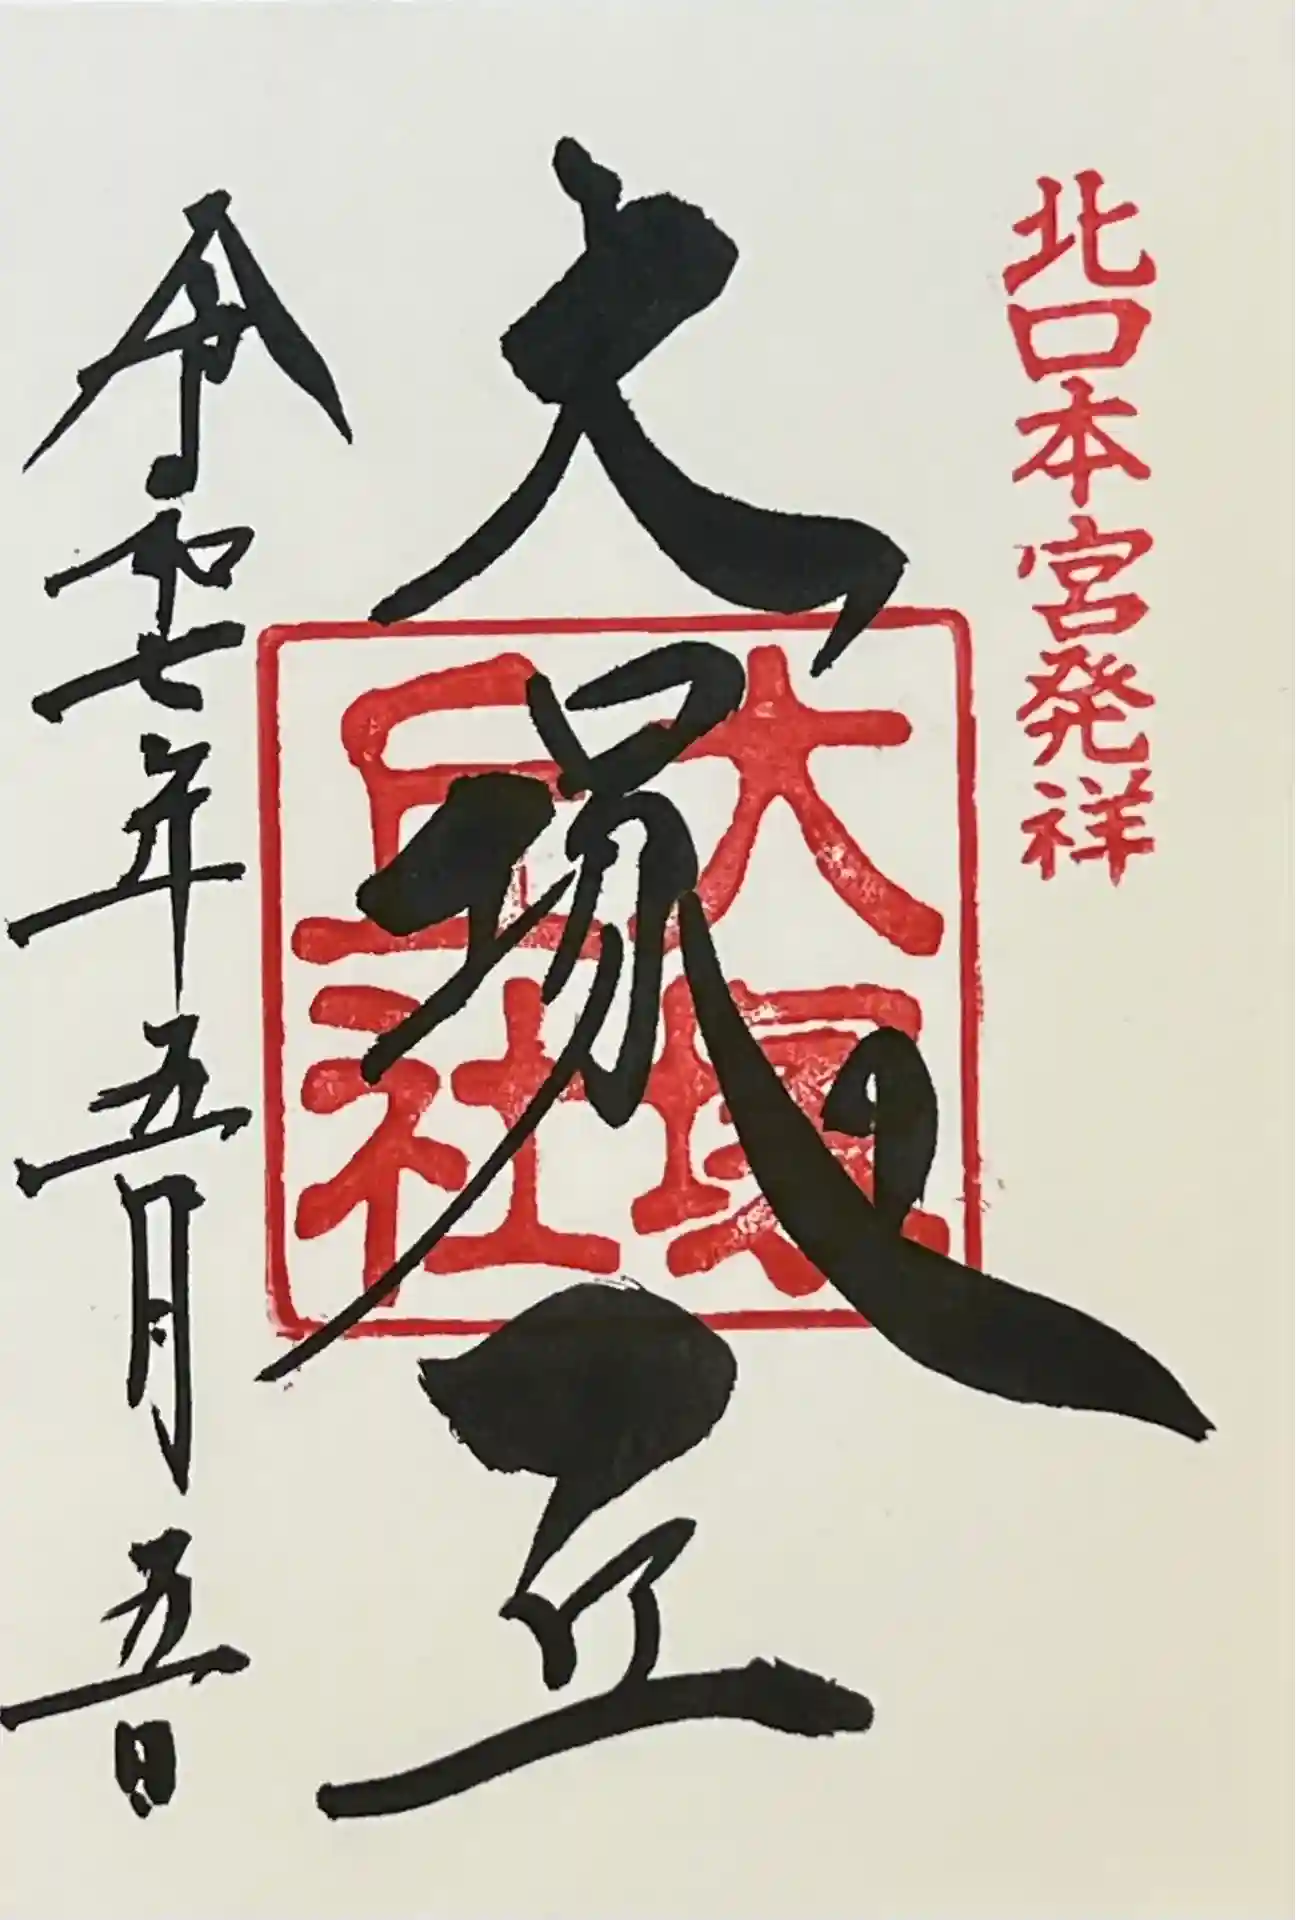 北口本宮発祥
大塚丘
大塚
丘社
令和七年五月五日